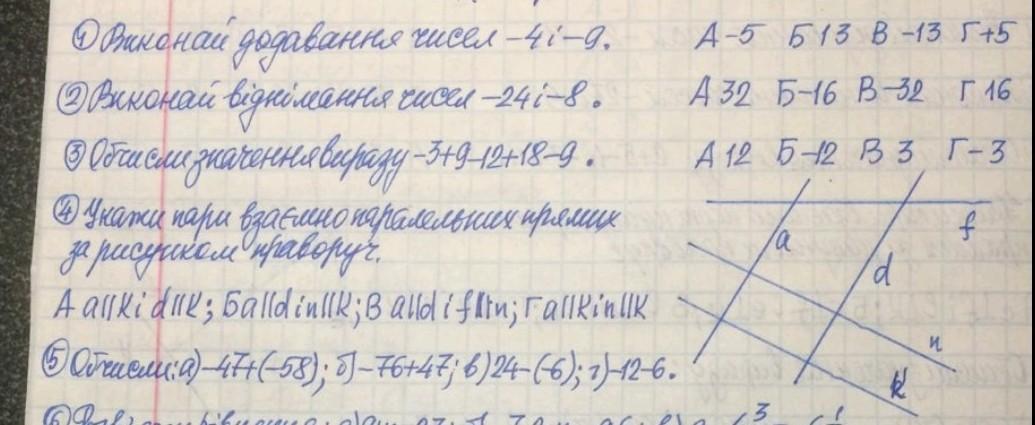 ① Виконай додавання чисел -4 і -9. А -5 Б 13 В -13 Г +5
② Виконай віднімання чисел -24 і -8. А 32 Б -16 В -32 Г 16
③ Обчисли значення виразу -3+9-12+18-9. А 12 Б -12 В 3 Г -3
④ Укажи пари взаємно паралельних прямих
за рисунком праворуч.
a
f
d
n
k
А a||k і d||k; Б a||d і n||k; В a||d і f||n; Г a||k і n||k
⑤ Обчисли: а) -47+(-58); б) -76+47; в) 24-(-6); г) -12-6.